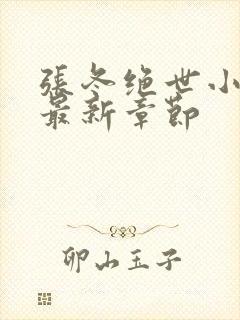 張冬绝世小
最新章節
卯山玉子